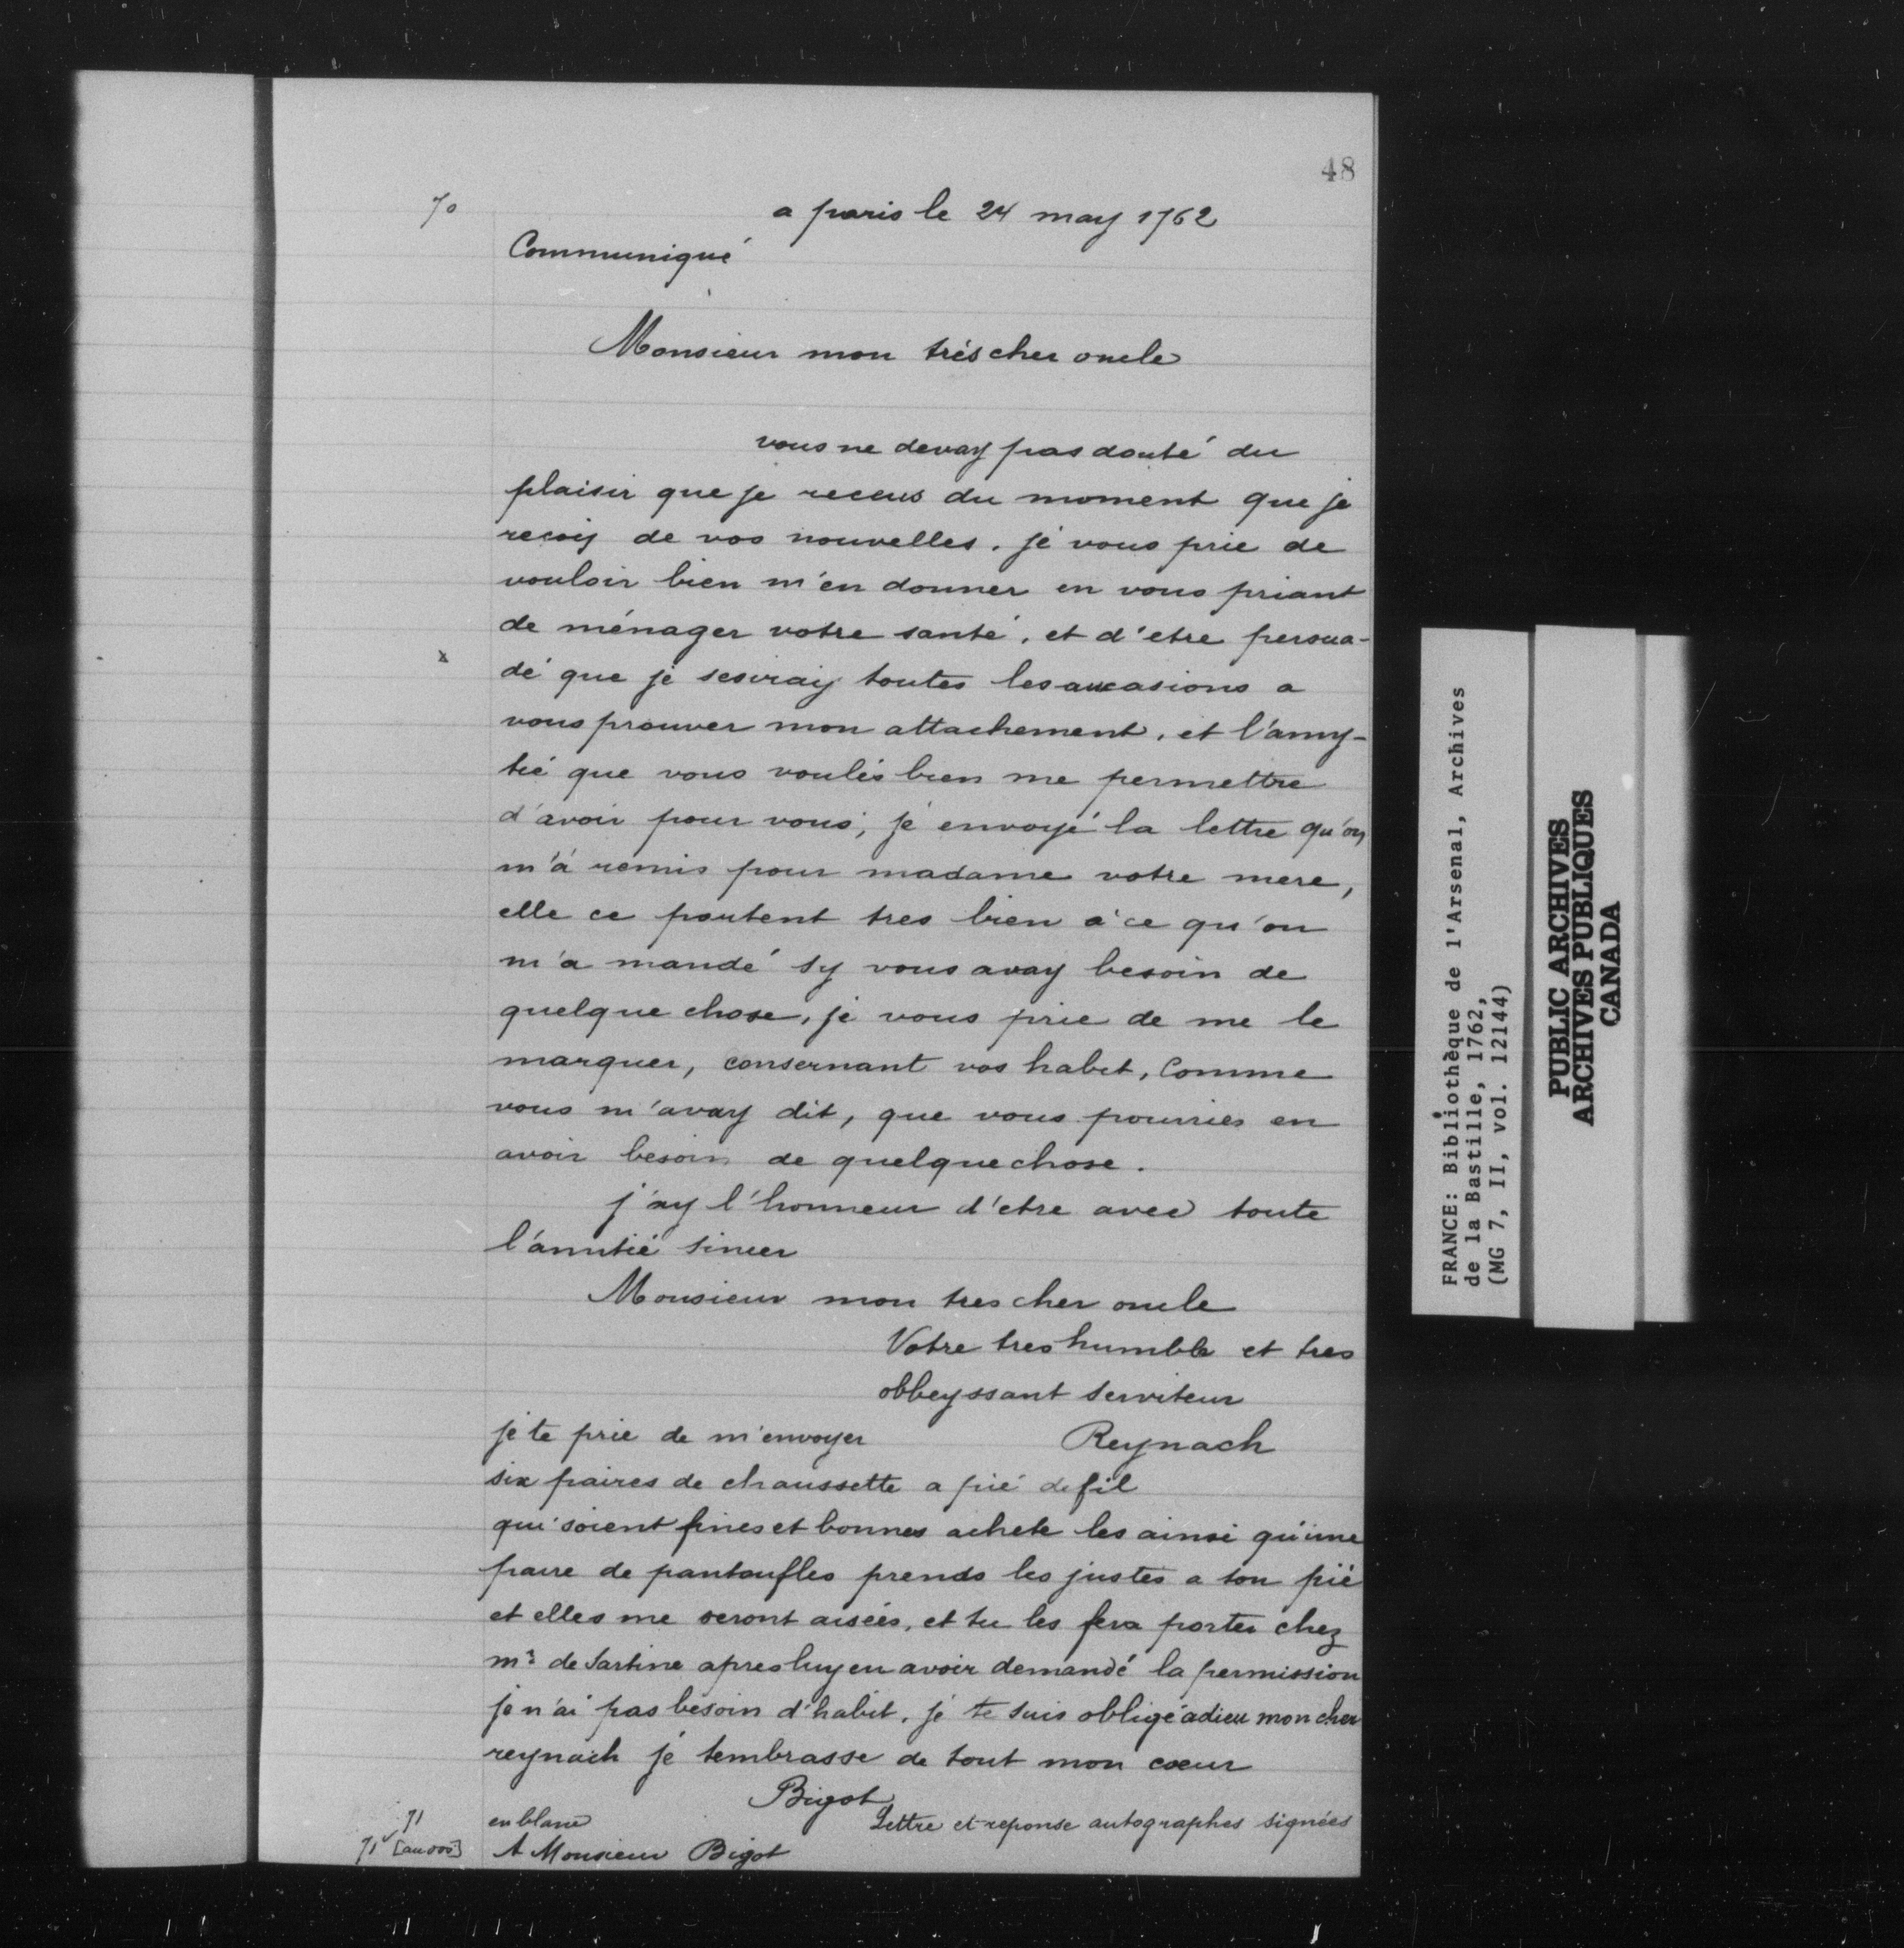 48
70
a paris le 24 may 1762
Communiqué
Monsieur mon trés cher oncle
vous ne devay pas douté du
plaisir que je receus du moment que je
recois de vos nouvelles. je vous prie de
vouloir bien m'en donner en vous priant
de ménager votre santé, et d'etre persua-
x
dé que je sesiray toutes les aucasions a
vous prouver mon attachement, et l'amy-
tié que vous voulés bien me permettre
d'avoir pour vous, jé envoyé la lettre qu'on
m'á remis pour madame votre mere,
elle ce portent tres bien a ce qu'on
m'a mandé sy vous avay besoin de
quelque chose, je vous prie de me le
marquer, consernant vos habit, Comme
vous m'avay dit, que vous pourries en
avoir besoin de quelque chose.
j'ay l'honneur d'etre avec toute
l'amitié sincer
Monsieur mon tres cher oncle
Votre tres humble et tres
obbeyssant serviteur
Reynach
je te prie de m'envoyer
six paires de chaussette a pié de fil
qui soient fines et bonnes achete les ainsi qu'une
paire de pantoufles prends les justes a ton pié
et elles me seront aisées, et tu les fera porter chez
mr de Sartine apres luy en avoir demandé la permission
je n'ai pas besoin d'habit, je te suis obligé adieu mon cher
reynach je tembrasse de tout mon coeur
Bigot
71 en blanc
Lettre et reponse autographes signées
71v [au dos] A Monsieur Bigot
FRANCE: Bibliothèque de l'Arsenal, Archives
de la Bastille, 1762,
(MG 7, II, vol. 12144)
PUBLIC ARCHIVES
ARCHIVES PUBLIQUES
CANADA